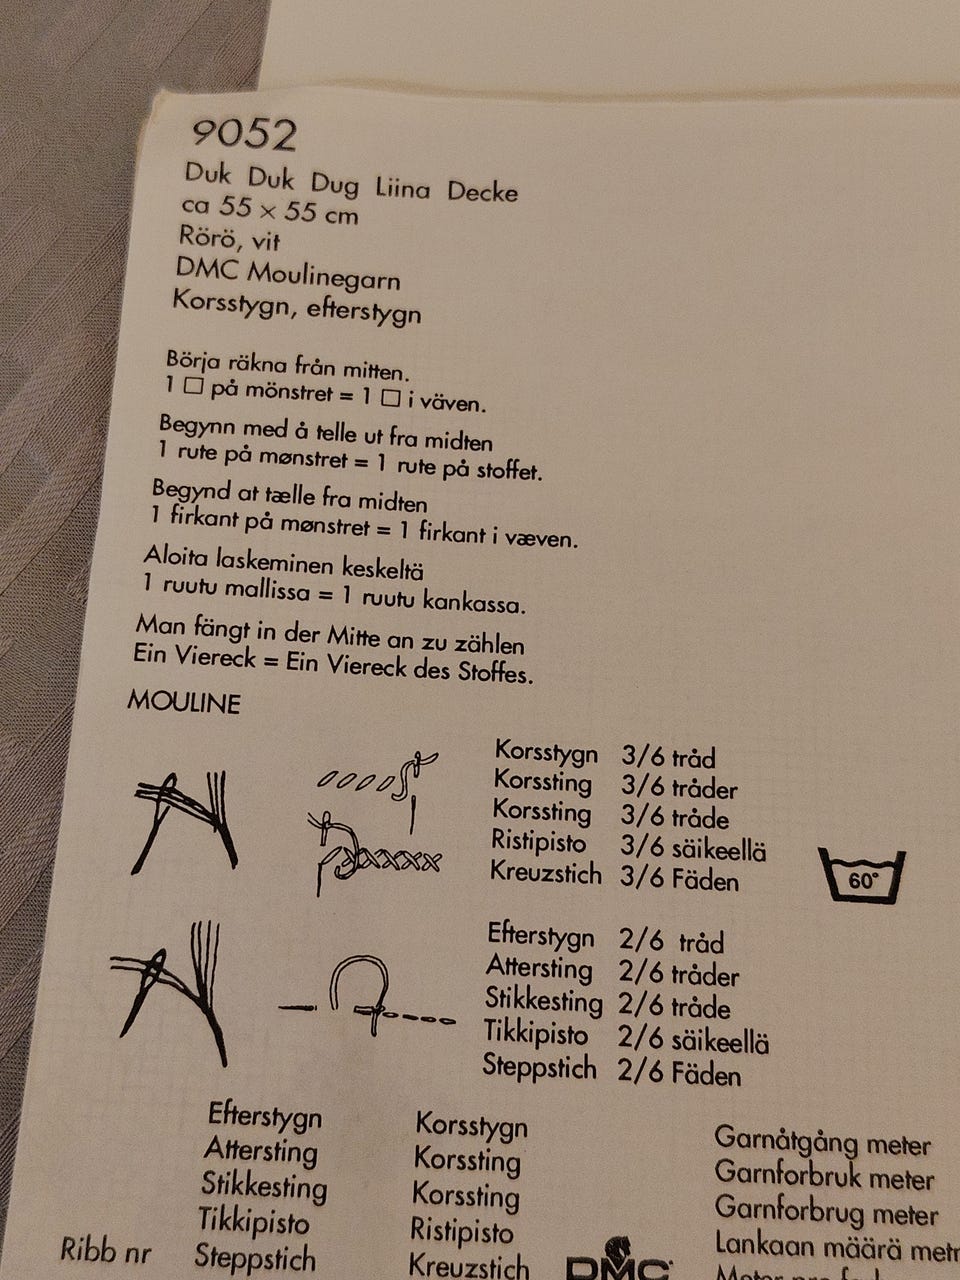 9052
Duk Duk Dug Liina Decke
ca 55 × 55 cm
Rörö, vit
DMC Moulinegarn
Korsstygn, efterstygn
Börja räkna från mitten.
1 □ på mönstret = 1 □ i väven.
Begynn med å telle ut fra midten
1 rute på mønstret = 1 rute på stoffet.
Begynd at tælle fra midten
1 firkant på mønstret = 1 firkant i væven.
Aloita laskeminen keskeltä
1 ruutu mallissa = 1 ruutu kankassa.
Man fängt in der Mitte an zu zählen
Ein Viereck = Ein Viereck des Stoffes.
MOULINE
Korsstygn 3/6 tråd
Korssting 3/6 tråder
Korssting 3/6 tråde
Ristipisto 3/6 säikeellä
Kreuzstich 3/6 Fäden
60°
Efterstygn 2/6 tråd
Attersting 2/6 tråder
Stikkesting 2/6 tråde
Tikkipisto 2/6 säikeellä
Steppstich 2/6 Fäden
Efterstygn Korsstygn Garnåtgång meter
Attersting Korssting Garnforbruk meter
Stikkesting Korssting Garnforbrug meter
Tikkipisto Ristipisto Lankaan määrä metr
Ribb nr Steppstich Kreuzstich DMC